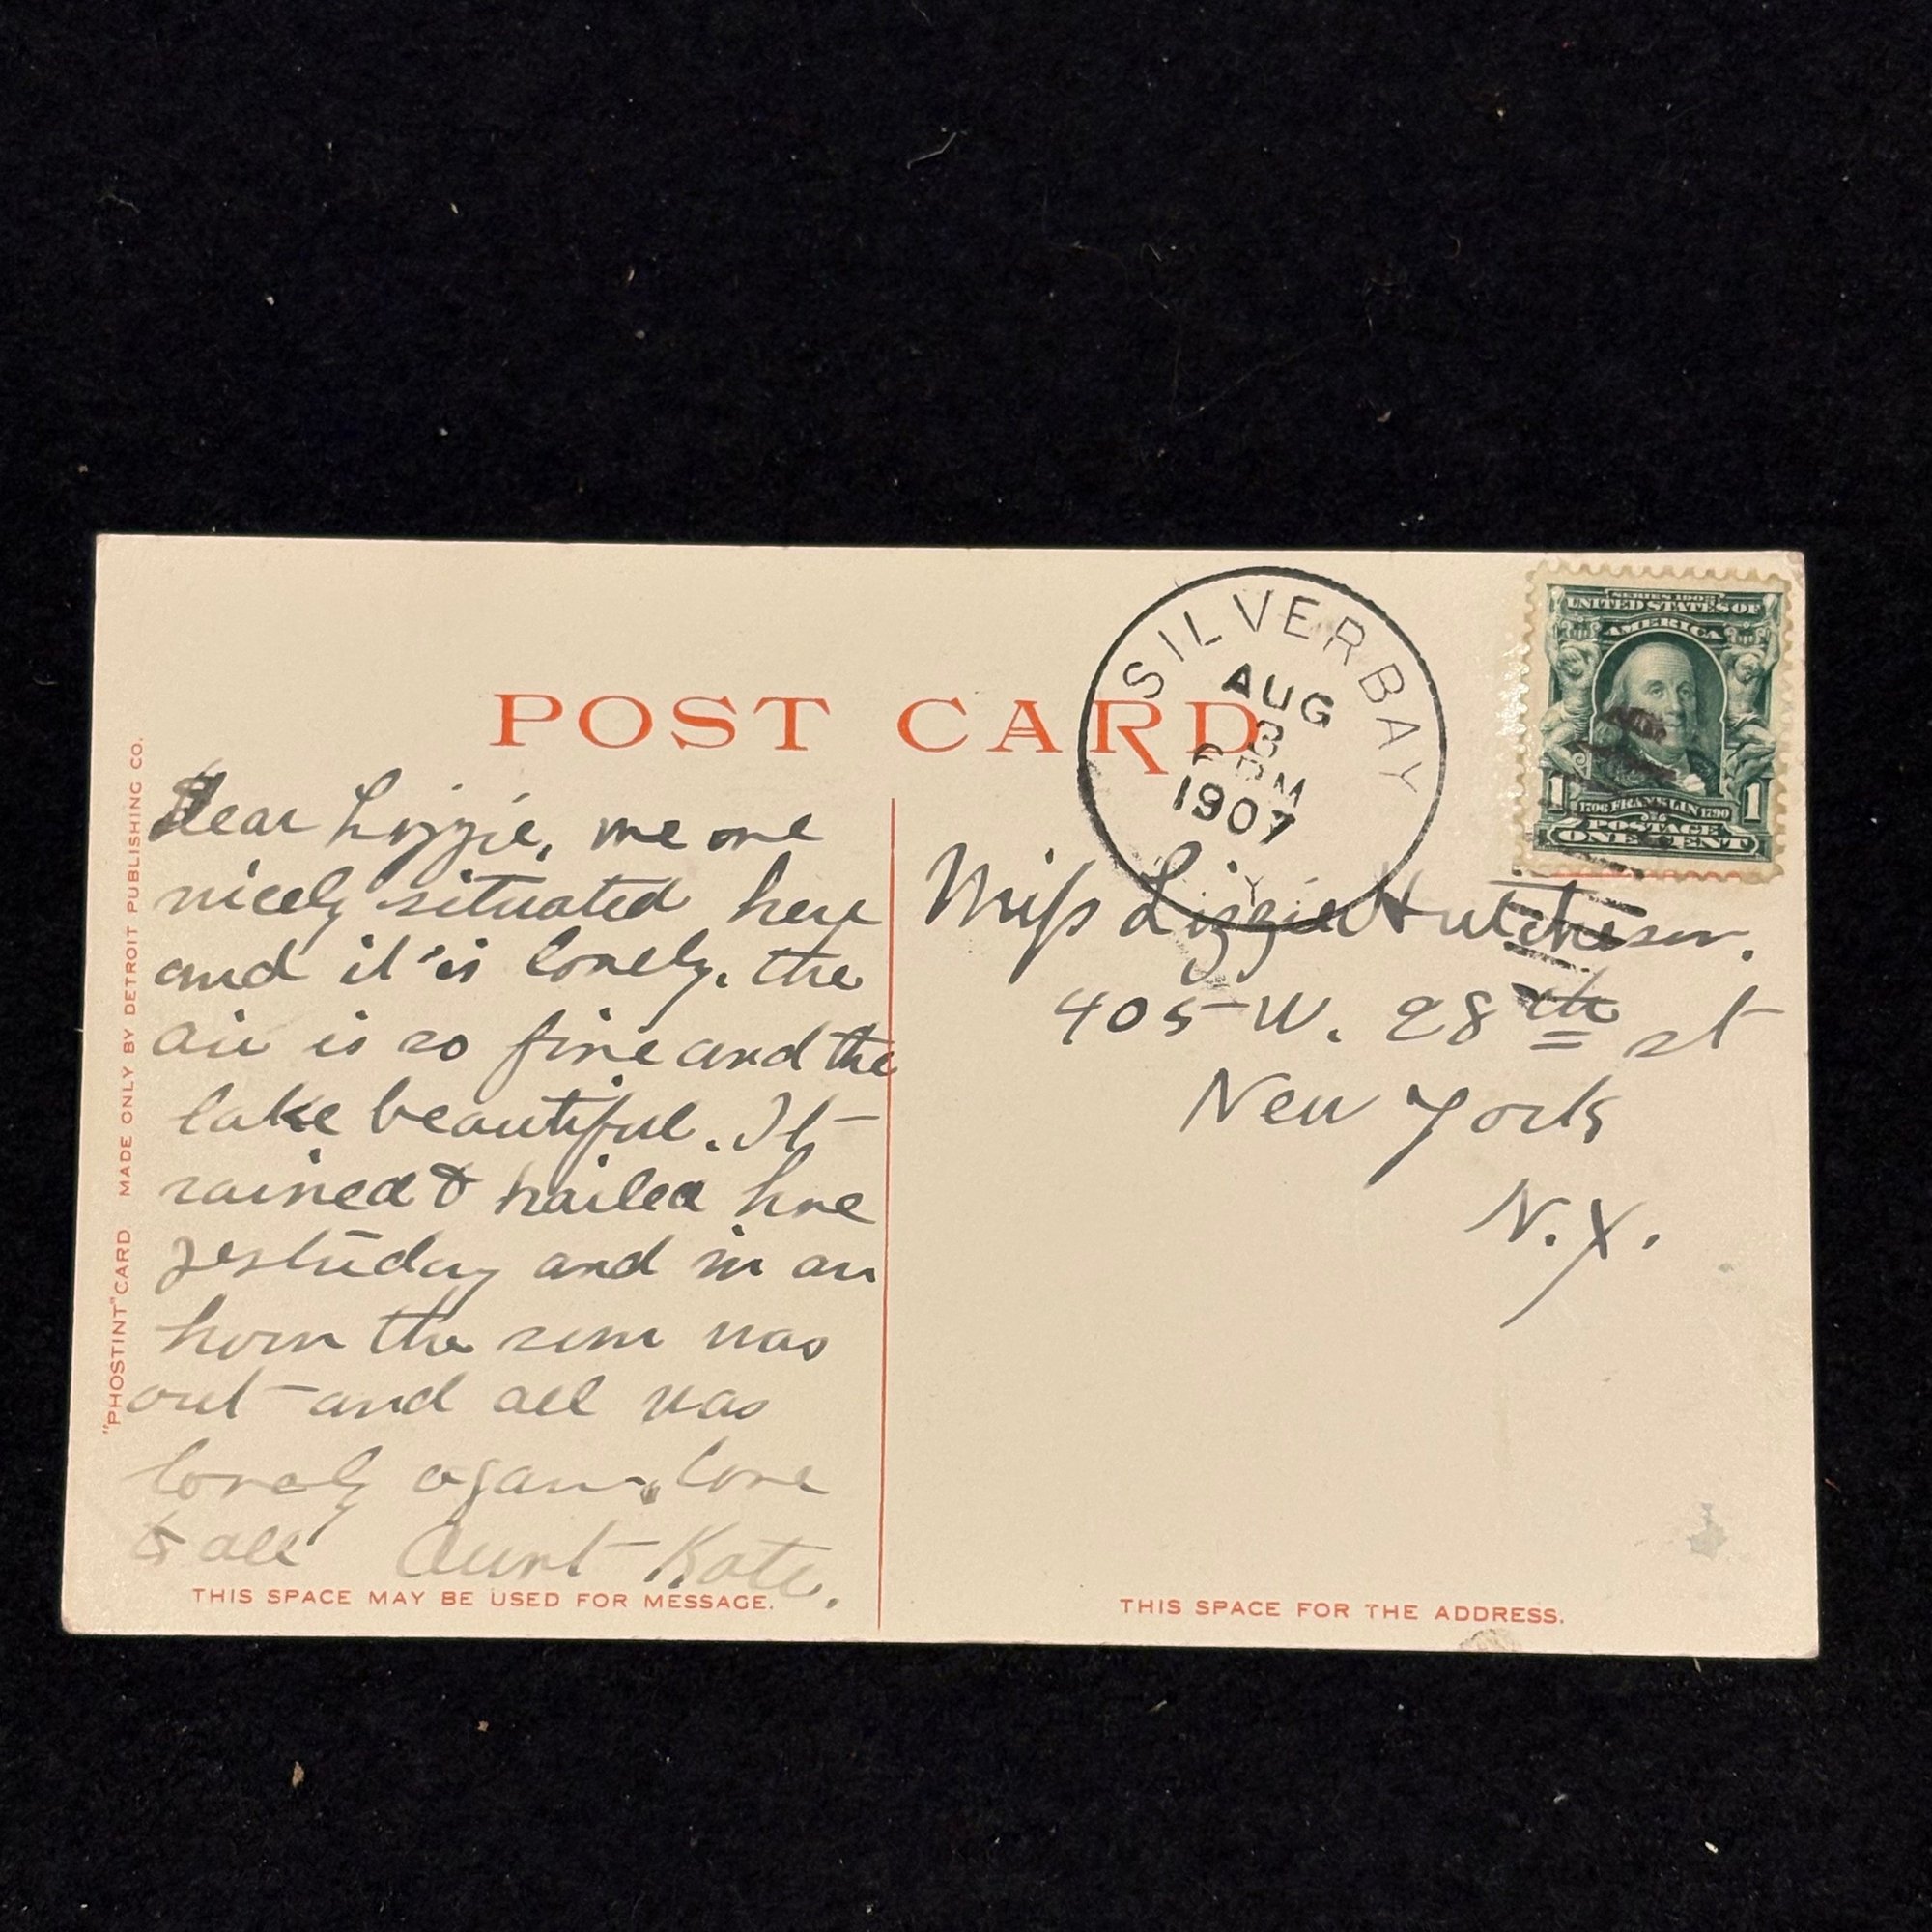 POST CARD
SILVER BAY
AUG
8
6 PM
1907
Y.
SERIES 1902
UNITED STATES OF
AMERICA
1706 FRANKLIN 1790
1 1
POSTAGE
ONE CENT
Dear Lizzie, we are
nicely situated here
and it is lovely. the
air is so fine and the
lake beautiful. It
rained & hailed here
yesterday and in an
hour the sun was
out and all was
lovely again. love
to all Aunt Kate.
THIS SPACE MAY BE USED FOR MESSAGE.
Miss Lizzie Hutcheson.
405 W. 28th st
New York
N.Y.
THIS SPACE FOR THE ADDRESS.
"PHOSTINT" CARD MADE ONLY BY DETROIT PUBLISHING CO.